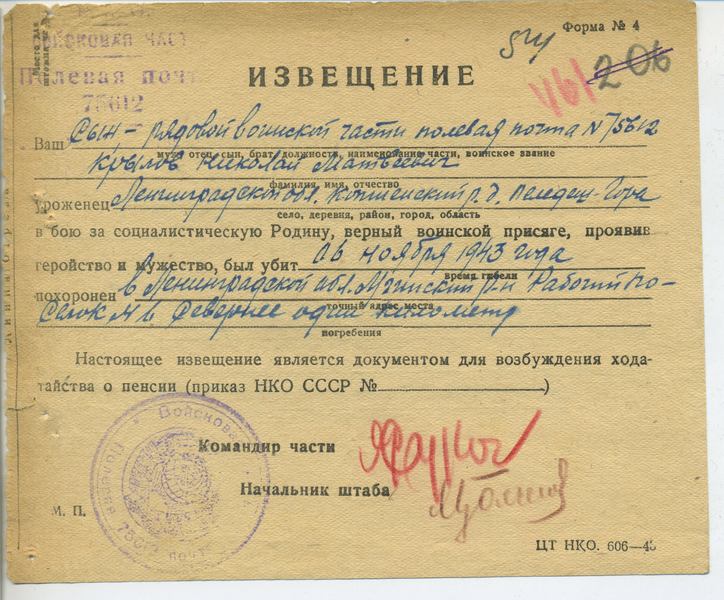 Форма № 4
ВОЙСКОВАЯ ЧАСТЬ
Полевая почта
75612
Место для
ИЗВЕЩЕНИЕ
461 206
Ваш сын - рядовой воинской части полевая почта N 75612
муж, отец, сын, брат, должность, наименование части, воинское звание
Крылов Николай Матвеевич
фамилия, имя, отчество
уроженец Ленинградской обл.
село, деревня, район, город, область
в бою за социалистическую Родину, верный воинской присяге, проявив
геройство и мужество, был убит 06 ноября 1943 года
время гибели
похоронен в Ленинградской обл. Мгинский р-н Рабочий по-
точный адрес места
селок N 6 севернее один километр
погребения
Настоящее извещение является документом для возбуждения хода-
тайства о пенсии (приказ НКО СССР № )
Командир части
Начальник штаба
М. П.
Войсковая
Полевая почта
75612
ЦТ НКО. 606—43